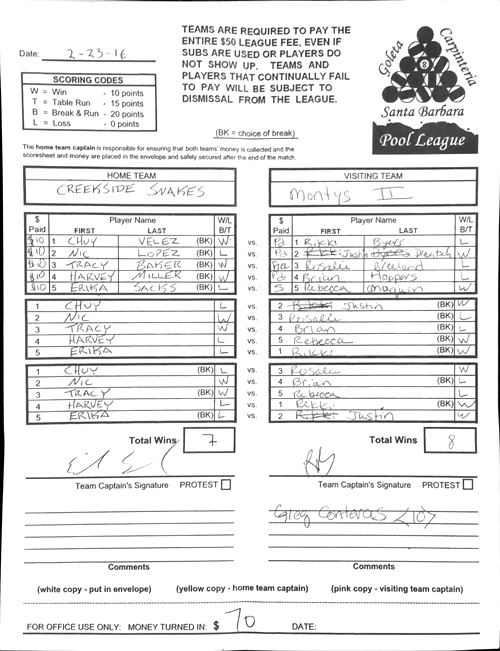 TEAMS ARE REQUIRED TO PAY THE
ENTIRE $50 LEAGUE FEE, EVEN IF
SUBS ARE USED OR PLAYERS DO
NOT SHOW UP. TEAMS AND
PLAYERS THAT CONTINUALLY FAIL
TO PAY WILL BE SUBJECT TO
DISMISSAL FROM THE LEAGUE.
(BK = choice of break)
Date: 2-23-16
SCORING CODES
W = Win - 10 points
T = Table Run - 15 points
B = Break & Run - 20 points
L = Loss - 0 points
Goleta Carpinteria
8
Santa Barbara
Pool League
The home team captain is responsible for ensuring that both teams' money is collected and the
scoresheet and money are placed in the envelope and safely secured after the end of the match.
HOME TEAM VISITING TEAM
CREEKSIDE SNAKES Montys II
$ Paid Player Name FIRST LAST W/L B/T $ Paid Player Name FIRST LAST W/L B/T
$10 1 CHUY VELEZ (BK) W vs. Pd 1 Rikki Byers L
$10 2 NIC LOPEZ (BK) L vs. Pd 2 Justin W
$10 3 TRACY BAKER (BK) W vs. 3 Rosalie L
$10 4 HARVEY MILLER (BK) L vs. Pd 4 Brian Hoppers W
$10 5 ERIKA SACKS (BK) L vs. 5 Rebecca W
1 CHUY L vs. 2 Rikki Justin (BK) W
2 NIC W vs. 3 Rosalie (BK) L
3 TRACY W vs. 4 Brian (BK) L
4 HARVEY L vs. 5 Rebecca (BK) W
5 ERIKA L vs. 1 Rikki (BK) W
1 CHUY (BK) L vs. 3 Rosalie W
2 NIC W vs. 4 Brian (BK) L
3 TRACY (BK) W vs. 5 Rebecca L
4 HARVEY L vs. 1 Rikki (BK) W
5 ERIKA (BK) L vs. 2 Rikki Justin W
Total Wins 7 Total Wins 8
Team Captain's Signature PROTEST Team Captain's Signature PROTEST
Greg Contreras <10>
Comments Comments
(white copy - put in envelope) (yellow copy - home team captain) (pink copy - visiting team captain)
FOR OFFICE USE ONLY: MONEY TURNED IN: $ 70 DATE: